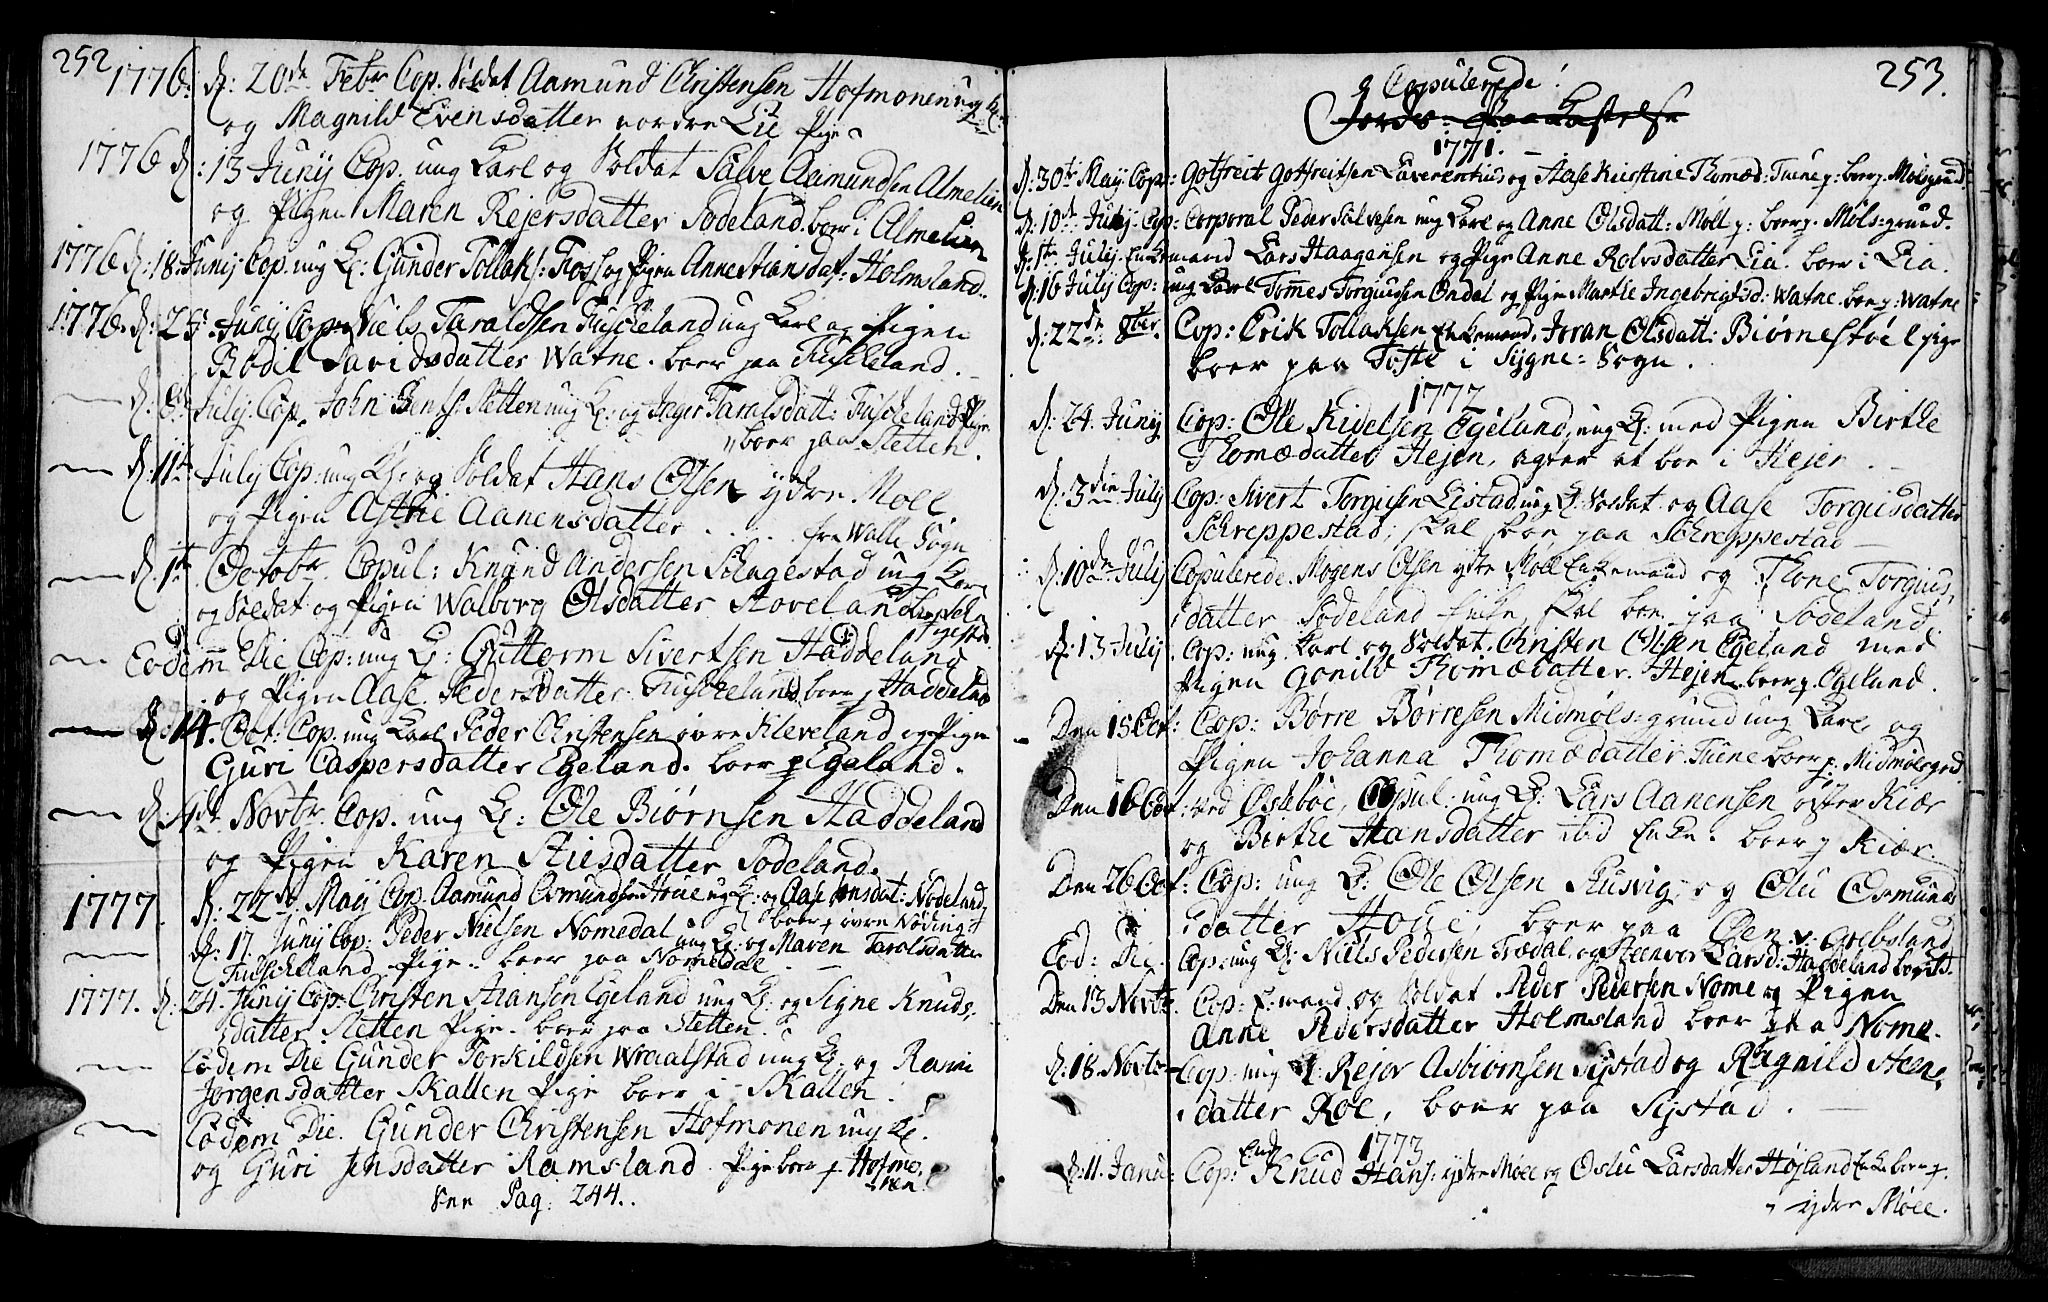 252
1776. d: 20de Febr Cop. Soldat Aamund Christensen Hofmonen ung K:
og Magnild Evensdatter nordre Lie Pige
1776 d: 13 Junij Cop. ung Karl og Soldat Salve Aamundsen Almelien
og Pigen Maren Rejersdatter Sodeland boer i Almelien
1776 d: 18 Junij Cop. ung K: Gunder Tollaks: Foss og Pigen Anne Stiansdat: Holmsland.
1776. d: 25 Junij Cop. Niels Taraldsen Fuskeland ung Karl og Pigen
Bodil Davidsdatter Watne. boer paa Fuskeland.
d: July Cop. John Jens: Sletten ung K: og Inger Taralsdatt: Fuskeland Pige
boer paa Sletten.
d: 11te July Cop: ung K: og Soldat Hans Olsen ydre Moll
og Pigen Astrie Aanensdatter . . . . fra Walle Sogn
d: 1te Octobr. Copul: Knund Andersen Slagestad ung Karl
og Soldat og Pigen Walborg Olsdatter Stoveland
Eodem Die Cop: ung K: Guttorm Sivertsen Haddeland
og Pigen Aase Pedersdatter Fuskeland boer p Haddeland
d: 14. Oct: Cop. ung Karl Peder Christensen øvre Kleveland og Pigen
Guri Caspersdatter Egeland. boer p Egeland.
d: 4de Novbr. Cop. ung K: Ole Biørnsen Haddeland
og Pigen Karen Stiesdatter Sodeland.
1777. d: 22de Maij Cop. Aamund Osmundsen Houe ung K: og Aase Jonsdat: Nodeland
boer p øvre Nøding
d: 17. Junij Cop: Peder Nielsen Nomedal ung K: og Maren Taralsdatter
Fuskelland Pige. boer paa Nomedal
1777. d: 24. Junij Cop: Christen Stiansen Egeland ung K: og Signe Knuds,
datter Sletten Pige. boer paa Sletten.
Eodem Die Gunder Torkildsen Wraalstad ung K. og Rami
Jørgensdatter Skallen Pige boer i Skallen.
Eodem Die. Gunder Christensen Hofmonen ung K.
og Guri Jensdatter Ramsland. Pige boer p Hofmo,
nen.
See Pag: 244.
253.
Copulerede:
1771.
d: 30te Maij Cop: Gotfreit Gotfreitsen Laverentius og Aase Kirstine Thomæd: Tuene p: boer p. Molsgrund
d: 10de Julij Cop: Corporal Peder Salvesen ung Karl og Anne Olsdatt: Moll p: boer p. Møls:grund.
d: 1te Julij Enkemand Lars Haagensen og Pige Anne Rolvsdatter Lia. boer i Lia.
d: 16 Julij Cop: ung Karl Tommes Torgiusen Ondal og Pigen Marthe Ingebrigtsd: Watne. boer p: Watne
d: 22de 8ber. Cop: Erik Tollaksen Enkemand. Joran Olsdatt: Biørnestøl pige
boer paa Tofte i Sygne: Sogn.
1777
d: 24. Junij Cop: Ole Kidelsen Egeland, ung K: med Pigen Birthe
Thomædatter Hejen, agter at boe i Hejen.
d: 3die Julij Cop: Sivert Torgiusen Listad ung K: Soldat og Aase Torgiusdatter
Schreppestad; skal boe paa Schreppestad
d: 10de Julij Copulerede. Mogens Olsen ydre Moll Enkemand og Thone Torgius,
datter Sodeland Enke, skal boe paa Sodeland
d: 13 Julij Cop: ung Karl og Soldat. Christen Olsen Egeland med
Pigen Gonild Thomædatter. Hejen boer p. Egeland.
Den 15 Oct: Cop: Børre Børresen Midmøls:grund ung Karl og
Pigen Johanna Thomædatter Tuene boer p. Midmølsgrd
Den 16 Oct: ved Oseboe, Copul: ung K: Lars Aanensen øster Kiær
og Birthe Hansdatter ibid Enke. boer p Kiær.
Den 26 Oct: Cop: ung K: Ole Olsen Husvig og Olu Osmunds
datter Houe, boer paa Øen v. Grebsland
Eod: Die. Cop: ung K: Niels Pedersen Trædal. og Steenvor Larsd: Haddeland boer ib.
Den 13 Novbr. Cop: E:mand og Soldat Peder Pedersen Nome og Pigen
Anne Pedersdatter Holmsland boer paa Nome.
d: 18. Novbr Cop: ung K: Rejor Asbiørnsen Systad og Ragnild Steen,
datter Roe, boer paa Systad.
1773
d: 11. Janu: Cop: Enk Knud Hans: ydre Møll og Oslu Larsdatter Højland Enke boer p.
ydre Møll.